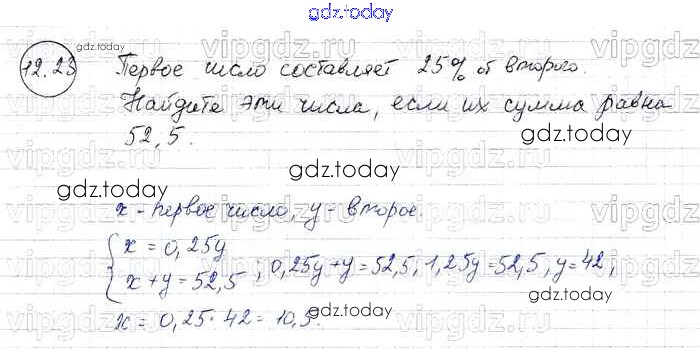 gdz.today
12.23 Первое число составляет 25% от второго.
Найдите эти числа, если их сумма равна
52,5.
x - первое число, y - второе.
{ x = 0,25y
x + y = 52,5 ; 0,25y + y = 52,5, 1,25y = 52,5, y = 42,
x = 0,25 · 42 = 10,5.
gdz.today
gdz.today
gdz.today
gdz.today
gdz.today
gdz.today
vipgdz.ru